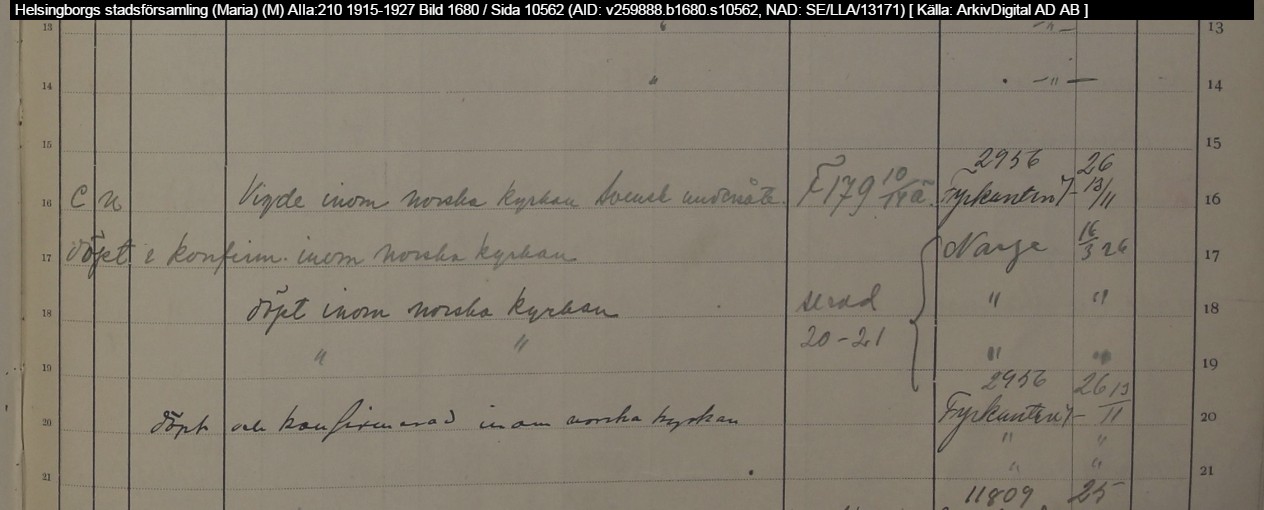 Helsingborgs stadsförsamling (Maria) (M) AIIa:210 1915-1927 Bild 1680 / Sida 10562 (AID: v259888.b1680.s10562, NAD: SE/LLA/13171) [ Källa: ArkivDigital AD AB ]
13 " -"- 13
14 " -"- 14
15 15
2956 26
16 C N Vigde inom norska kyrkan Svensk undersåte. F 179 10/ Fyrkanten 7 - 13/11 16
17 döpt o konfirm. inom norska kyrkan Norge 16/3 26 17
18 döpt inom norska kyrkan se rad " " 18
20-21
19 " " " " 19
2956 26 13/11
20 döpt och konfirmerad inom norska kyrkan Fyrkanten 7 - 20
" "
21 " " 21
11809 25